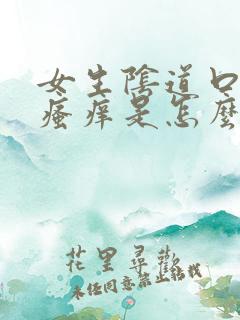 女生陰道口
瘙痒是怎麽
花里尋歡
未经同意禁止转载